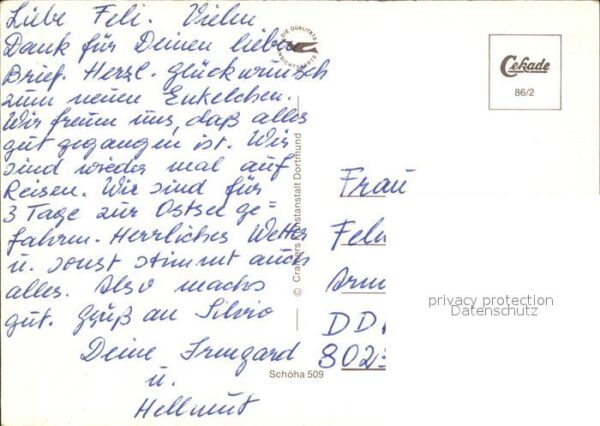 Liebe Feli. Vielen
Dank für Deinen lieben
Brief. Herzl. Glückwunsch
zum neuen Enkelchen.
Wir freuen uns, daß alles
gut gegangen ist. Wir
sind wieder mal auf
Reisen. Wir sind für
3 Tage zur Ostsee ge=
fahren. Herrliches Wetter
u. sonst stimmt auch
alles. Also machs
gut. Gruß an Silvio
Deine Irmgard
u.
Hellmut
DIE QUALITÄTS
ANSICHTSKARTE
© Cramers Kunstanstalt Dortmund
Schöha 509
Cekade
86/2
Frau
Feli
Arno
DD
802
privacy protection
Datenschutz